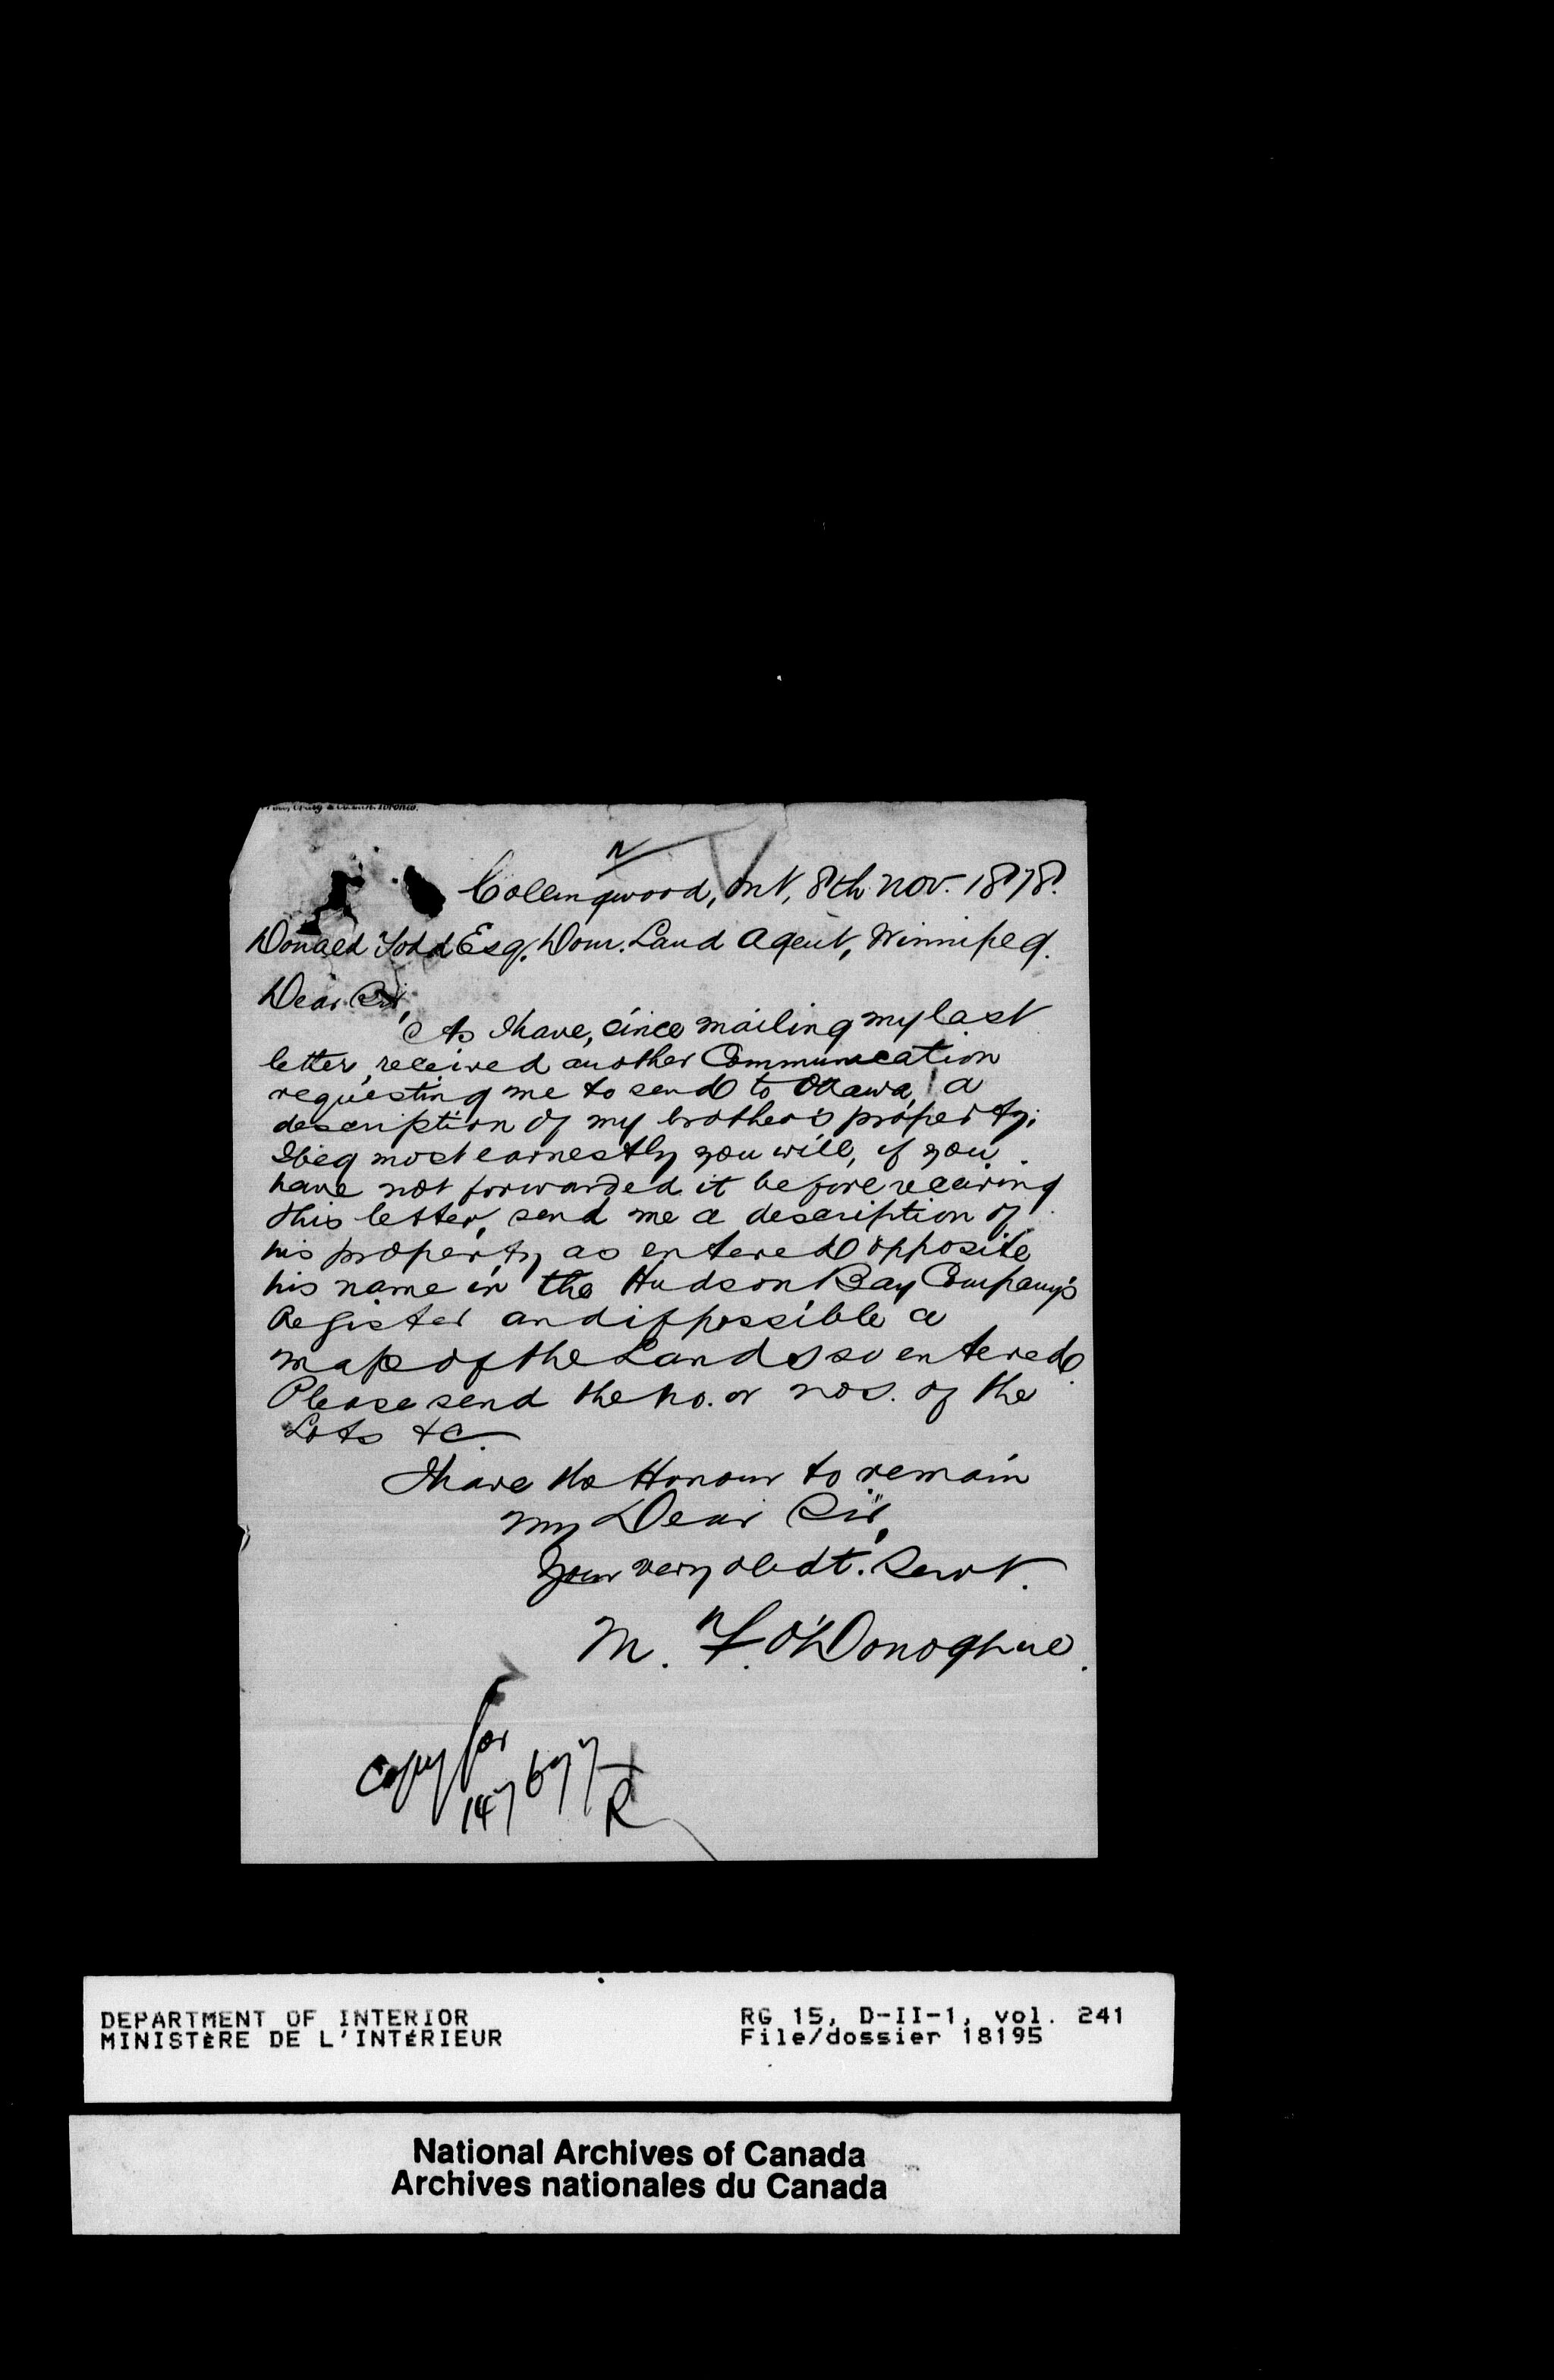 Collingwood, Ont, 8th Nov. 1878.
Donald Todd Esq. Dom. Land Agent, Winnipeg.
Dear Sir,
As I have, since mailing my last
letter, received another Communication
requesting me to send to Ottawa, a
description of my brother's property;
I beg most earnestly you will, if you
have not forwarded it before receiving
this letter, send me a description of
his property as entered opposite
his name in the Hudson Bay Company's
Register and if possible a
map of the Lands so entered.
Please send the no. or nos. of the
Lots &c.
I have the Honour to remain
My Dear Sir,
Your very obedt. Servt.
M. F. O'Donoghue.
Copy for
147677
R
DEPARTMENT OF INTERIOR
MINISTÈRE DE L'INTÉRIEUR
RG 15, D-II-1, vol. 241
File/dossier 18195
National Archives of Canada
Archives nationales du Canada